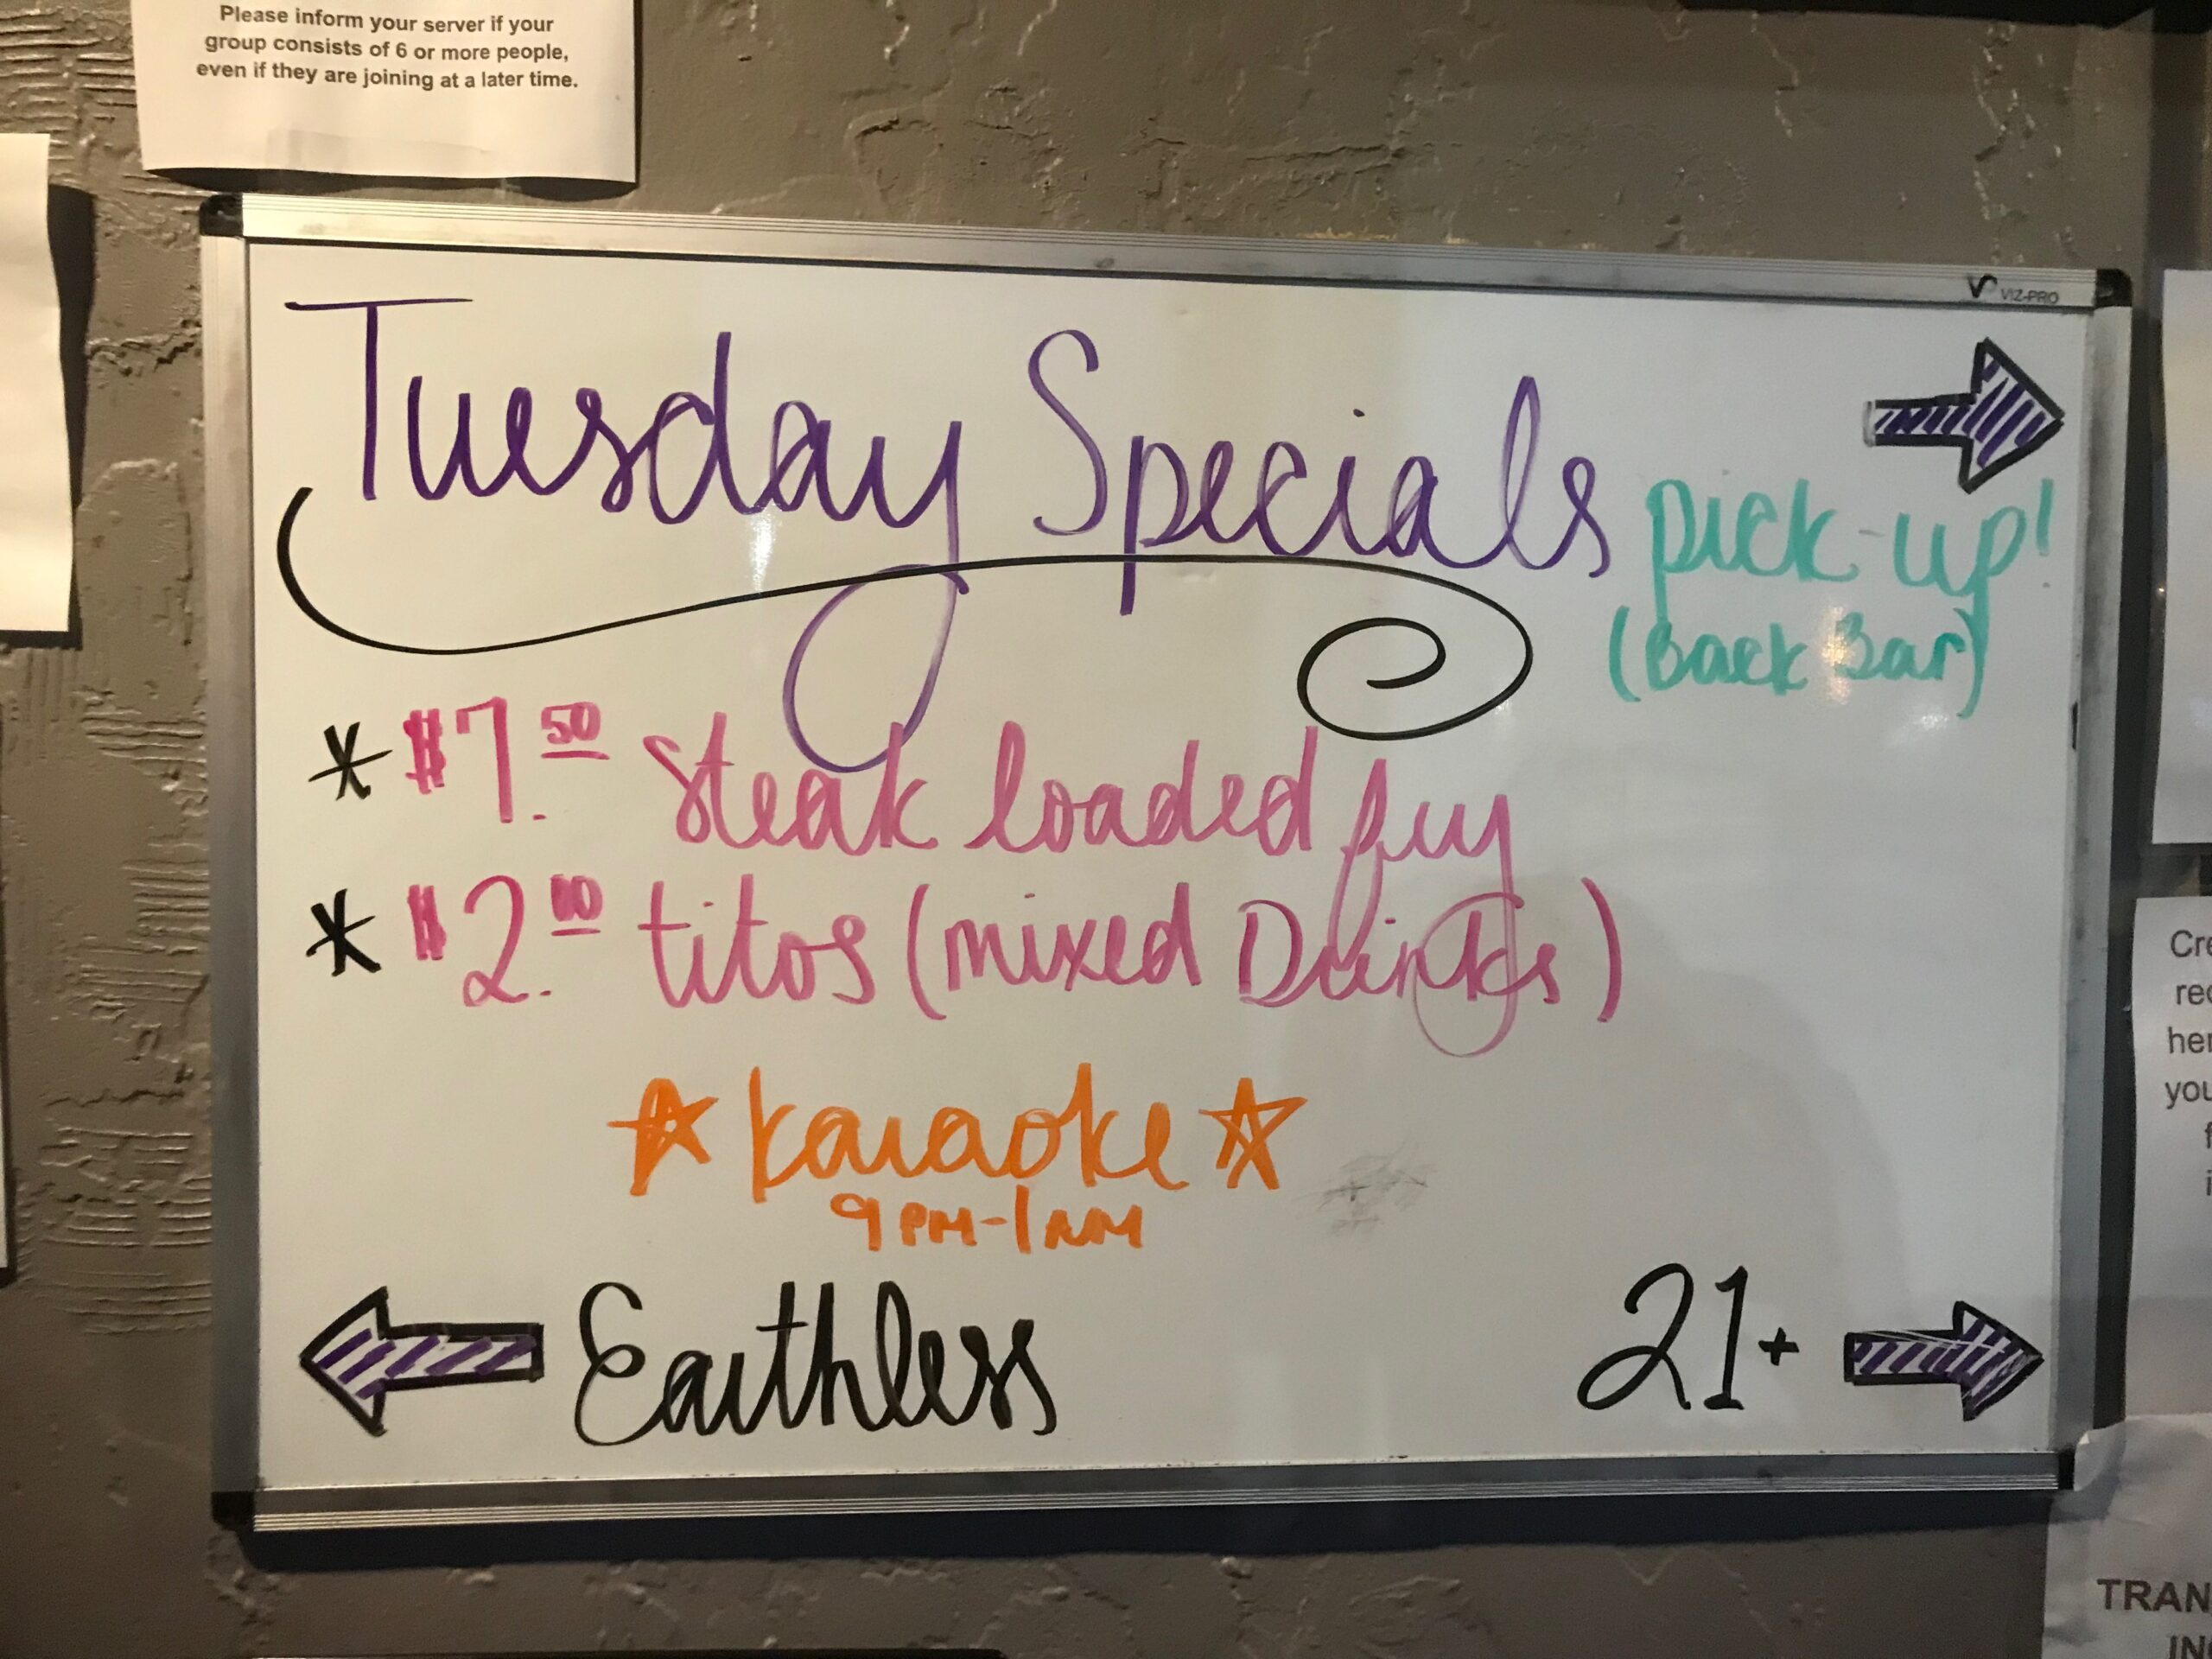 Please inform your server if your
group consists of 6 or more people,
even if they are joining at a later time.
VIZ-PRO
Tuesday Specials
pick-up!
(Back Bar)
* $7.50 steak loaded fry
* $2.00 titos (mixed Drinks)
karaoke
9PM-1AM
Earthless
21+
Cre
rec
her
you
f
i
TRAN
IN